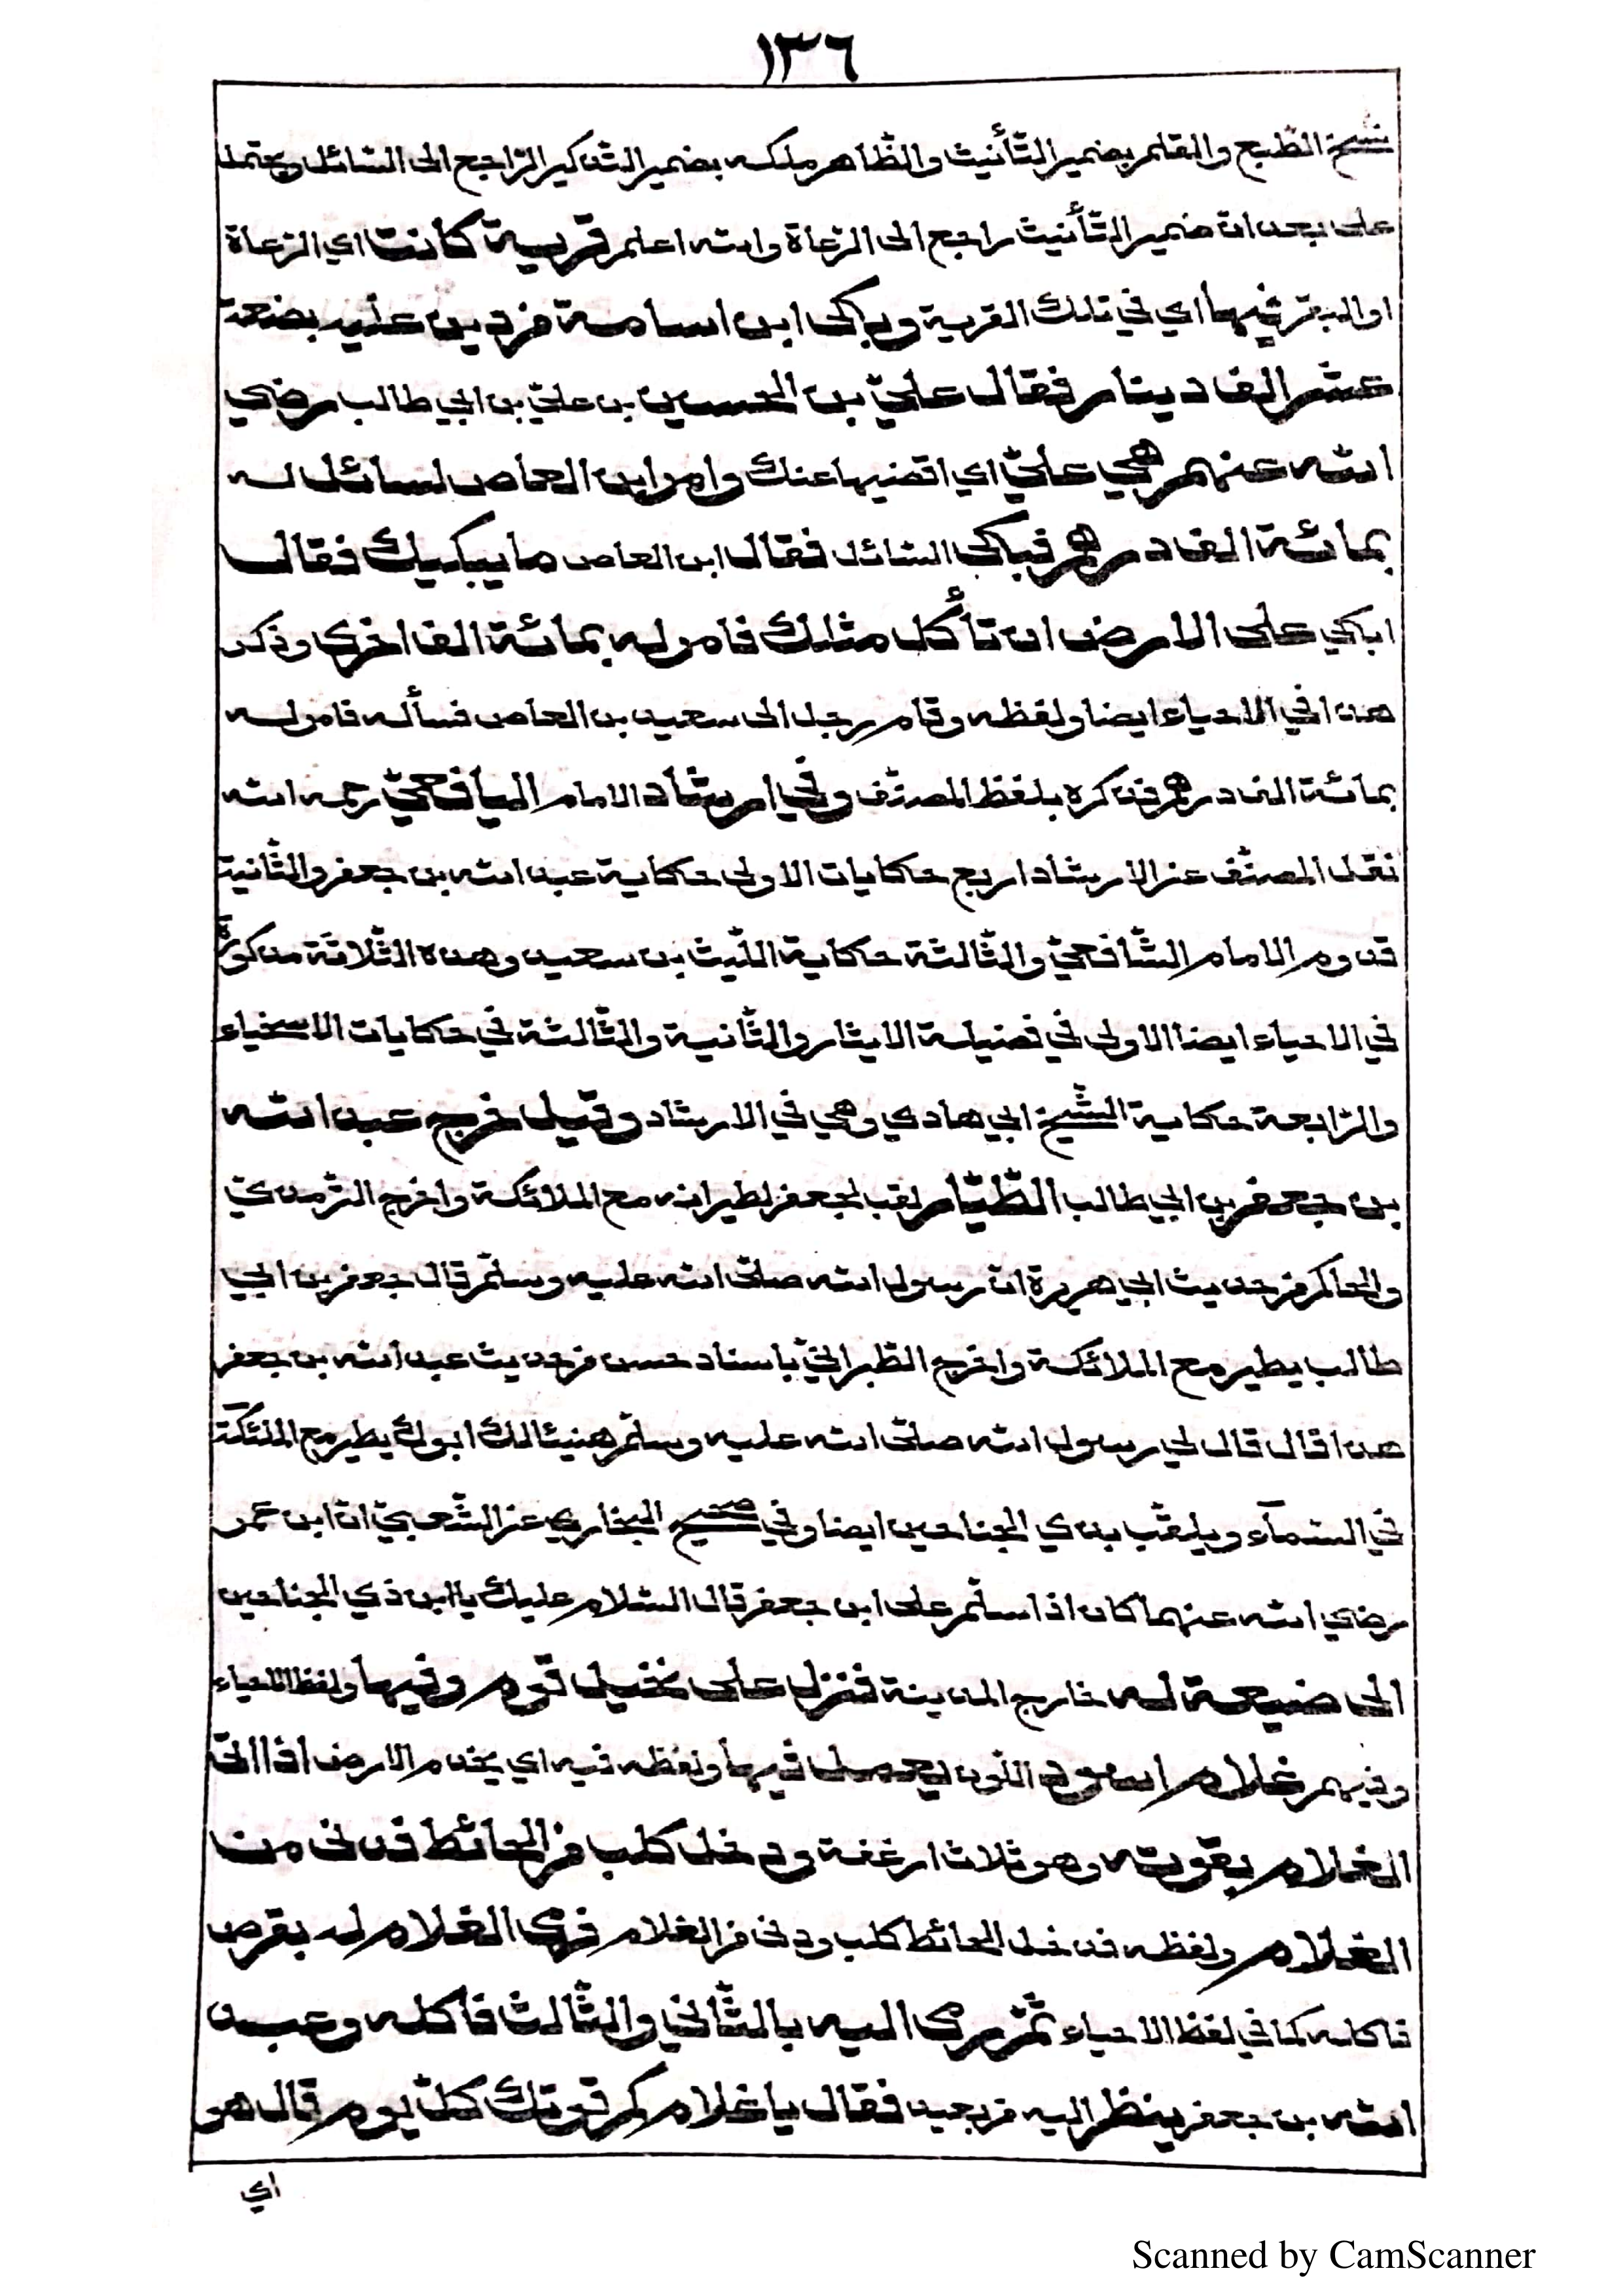 ١٣٦
نسخ الطّبع والقلم بضمير التّأنيث والظّاهر ملكه بضمير التّذكير الرّاجع الى السّائل ويحتمل
على بعد ان ضمير التّأنيث راجع الى الرّعاة والله اعلم قرية كانت اي الرّعاة
او البقر فيها اي في تلك القرية وبكى ابن اسامة من دين عليه بضعة
عشر الف دينار فقال عليّ بن الحسين بن عليّ بن ابي طالب رضي
الله عنهم هي عليّ اي اقضيها عنك وامر ابن العاص لسائل له
بمائة الف درهم فبكى السّائل فقال ابن العاص ما يبكيك فقال
ابكي على الارض ان تأكل مثلك فامر له بمائة الف اخرى وذكر
هذا في الاحياء ايضا ولفظه وقام رجل الى سعيد بن العاص فسأله فامر له
بمائة الف درهم فذكره بلفظ المصنّف وفي ارشاد الامام اليافعيّ رحمه الله
نقل المصنّف عن الارشاد اربع حكايات الاولى حكاية عبد الله بن جعفر والثّانية
قدوم الامام الشّافعيّ والثّالثة حكاية اللّيث بن سعيد وهذه الثّلاثة مذكورة
في الاحياء ايضا الاولى في فضيلة الايثار والثّانية والثّالثة في حكايات الاسخياء
والرّابعة حكاية الشّيخ ابي هادي وهي في الارشاد وقيل خرج عبد الله
بن جعفر بن ابي طالب الطّيّار لقب لجعفر لطيرانه مع الملائكة واخرج التّرمذيّ
والحاكم من حديث ابي هريرة ان رسول الله صلّى الله عليه وسلّم قال جعفر بن ابي
طالب يطير مع الملائكة واخرج الطّبرانيّ باسناد حسن من حديث عبد الله بن جعفر
هذا قال قال لي رسول الله صلّى الله عليه وسلّم هنيئا لك ابوك يطير مع الملئكة
في السّمآء ويلقّب بذي الجناحين ايضا وفي صحيح البخاري عن الشّعبيّ انّ ابن عمر
رضي الله عنهما كان اذا سلّم على ابن جعفر قال السّلام عليك يا ابن ذي الجناحين
الى ضيعة له خارج المدينة فنزل على نخيل قوم وفيها ولفظ الاحياء
وفيهم غلام اسود اللّون يعمل فيها ولفظه فيه اي يخدم الارض اذا اتى
الغلام بقوته وهو ثلاث ارغفة ودخل كلب من الحائط فدنى من
الغلام ولفظه فدخل الحائط كلب ودنى من الغلام فرمى الغلام له بقرص
فاكله كما في لفظ الاحياء ثمّ رمى اليه بالثّاني والثّالث فاكله وعبد
الله بن جعفر ينظر اليه من بعيد فقال يا غلام كم قوتك كلّ يوم قال هو
اي
Scanned by CamScanner